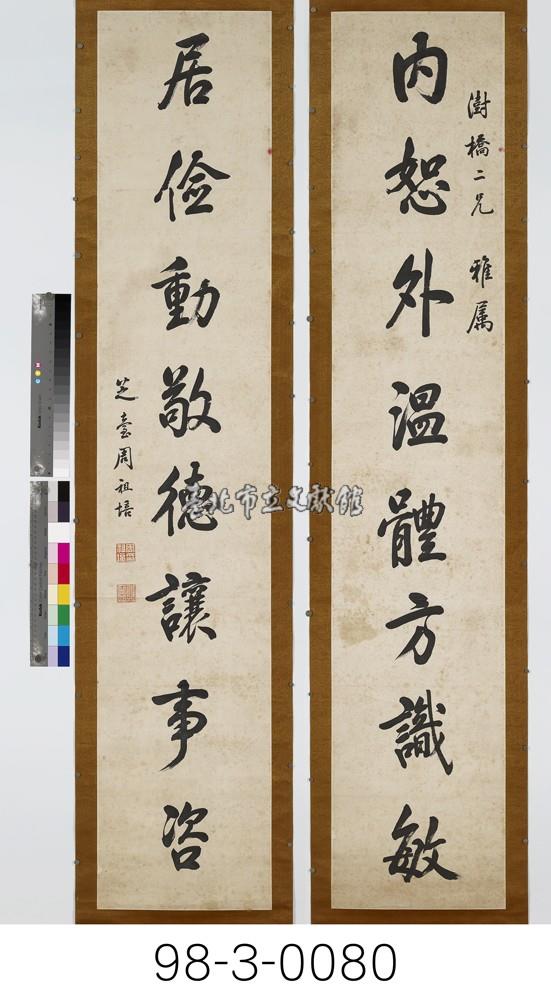 澍橋二兄 雅属
內恕外溫體方識敏
居儉動敬德讓事咨
芝臺周祖培
臺北市立文獻館
98-3-0080